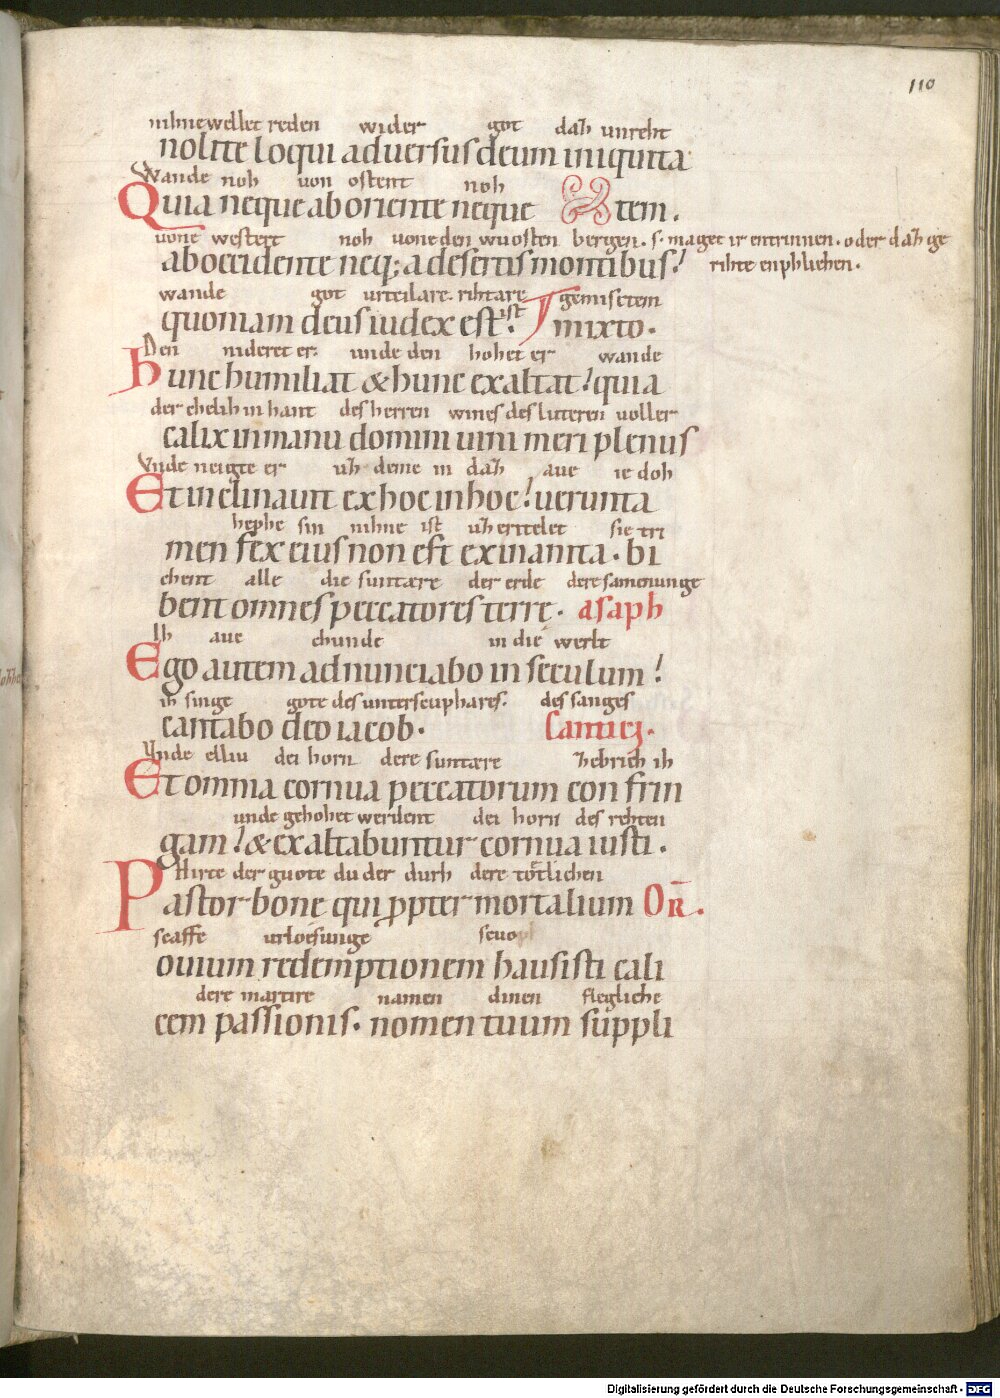 110
nihnewellet reden wider got daz unreht
nolite loqui aduersus deum iniquita
Wande noh uon ostent noh
Quia neque ab oriente neque tem.
uone westert noh uone den wuosten bergen. s. maget ir entrinnen. oder daz ge
ab occidente neq; a desertis montibus! rihte enphliehen.
wande got urteilare. rihtare ist gemiscten
quoniam deus iudex est. mixto.
Den nideret er. unde den hohet er wande
hunc humiliat & hunc exaltat! quia
der chelih in hant des herren wines des lutteren uoller
calix in manu domini uini meri plenus
Vnde neigte er uz deme in daz aue ie doh
Et inclinauit ex hoc in hoc! uerunta
hephe sin nihne ist uz eritelet sie tri
men fex eius non est exinanita. bi
chent alle die suntære der erde dere samenunge
bent omnes peccatores terrę. asaph
Ih aue chunde in die werlt
Ego autem adnunciabo in seculum!
ih singe gote des unterscuphares. des sanges
cantabo deo iacob. Cantici.
Vnde elliu dei horn dere suntære zebrich ih
Et omnia cornua peccatorum confrin
unde gehohet werdent dei horn des rehten
gam! & exaltabuntur cornua iusti.
Hirte der guote du der durh dere tôtlichen
Pastor bone qui ꝓpter mortalium OR̄.
scaffe urloesunge scuo
ouium redemptionem hausisti cali
dere martire namen dinen flegliche
cem passionis. nomen tuum suppli
Digitalisierung gefördert durch die Deutsche Forschungsgemeinschaft - DFG